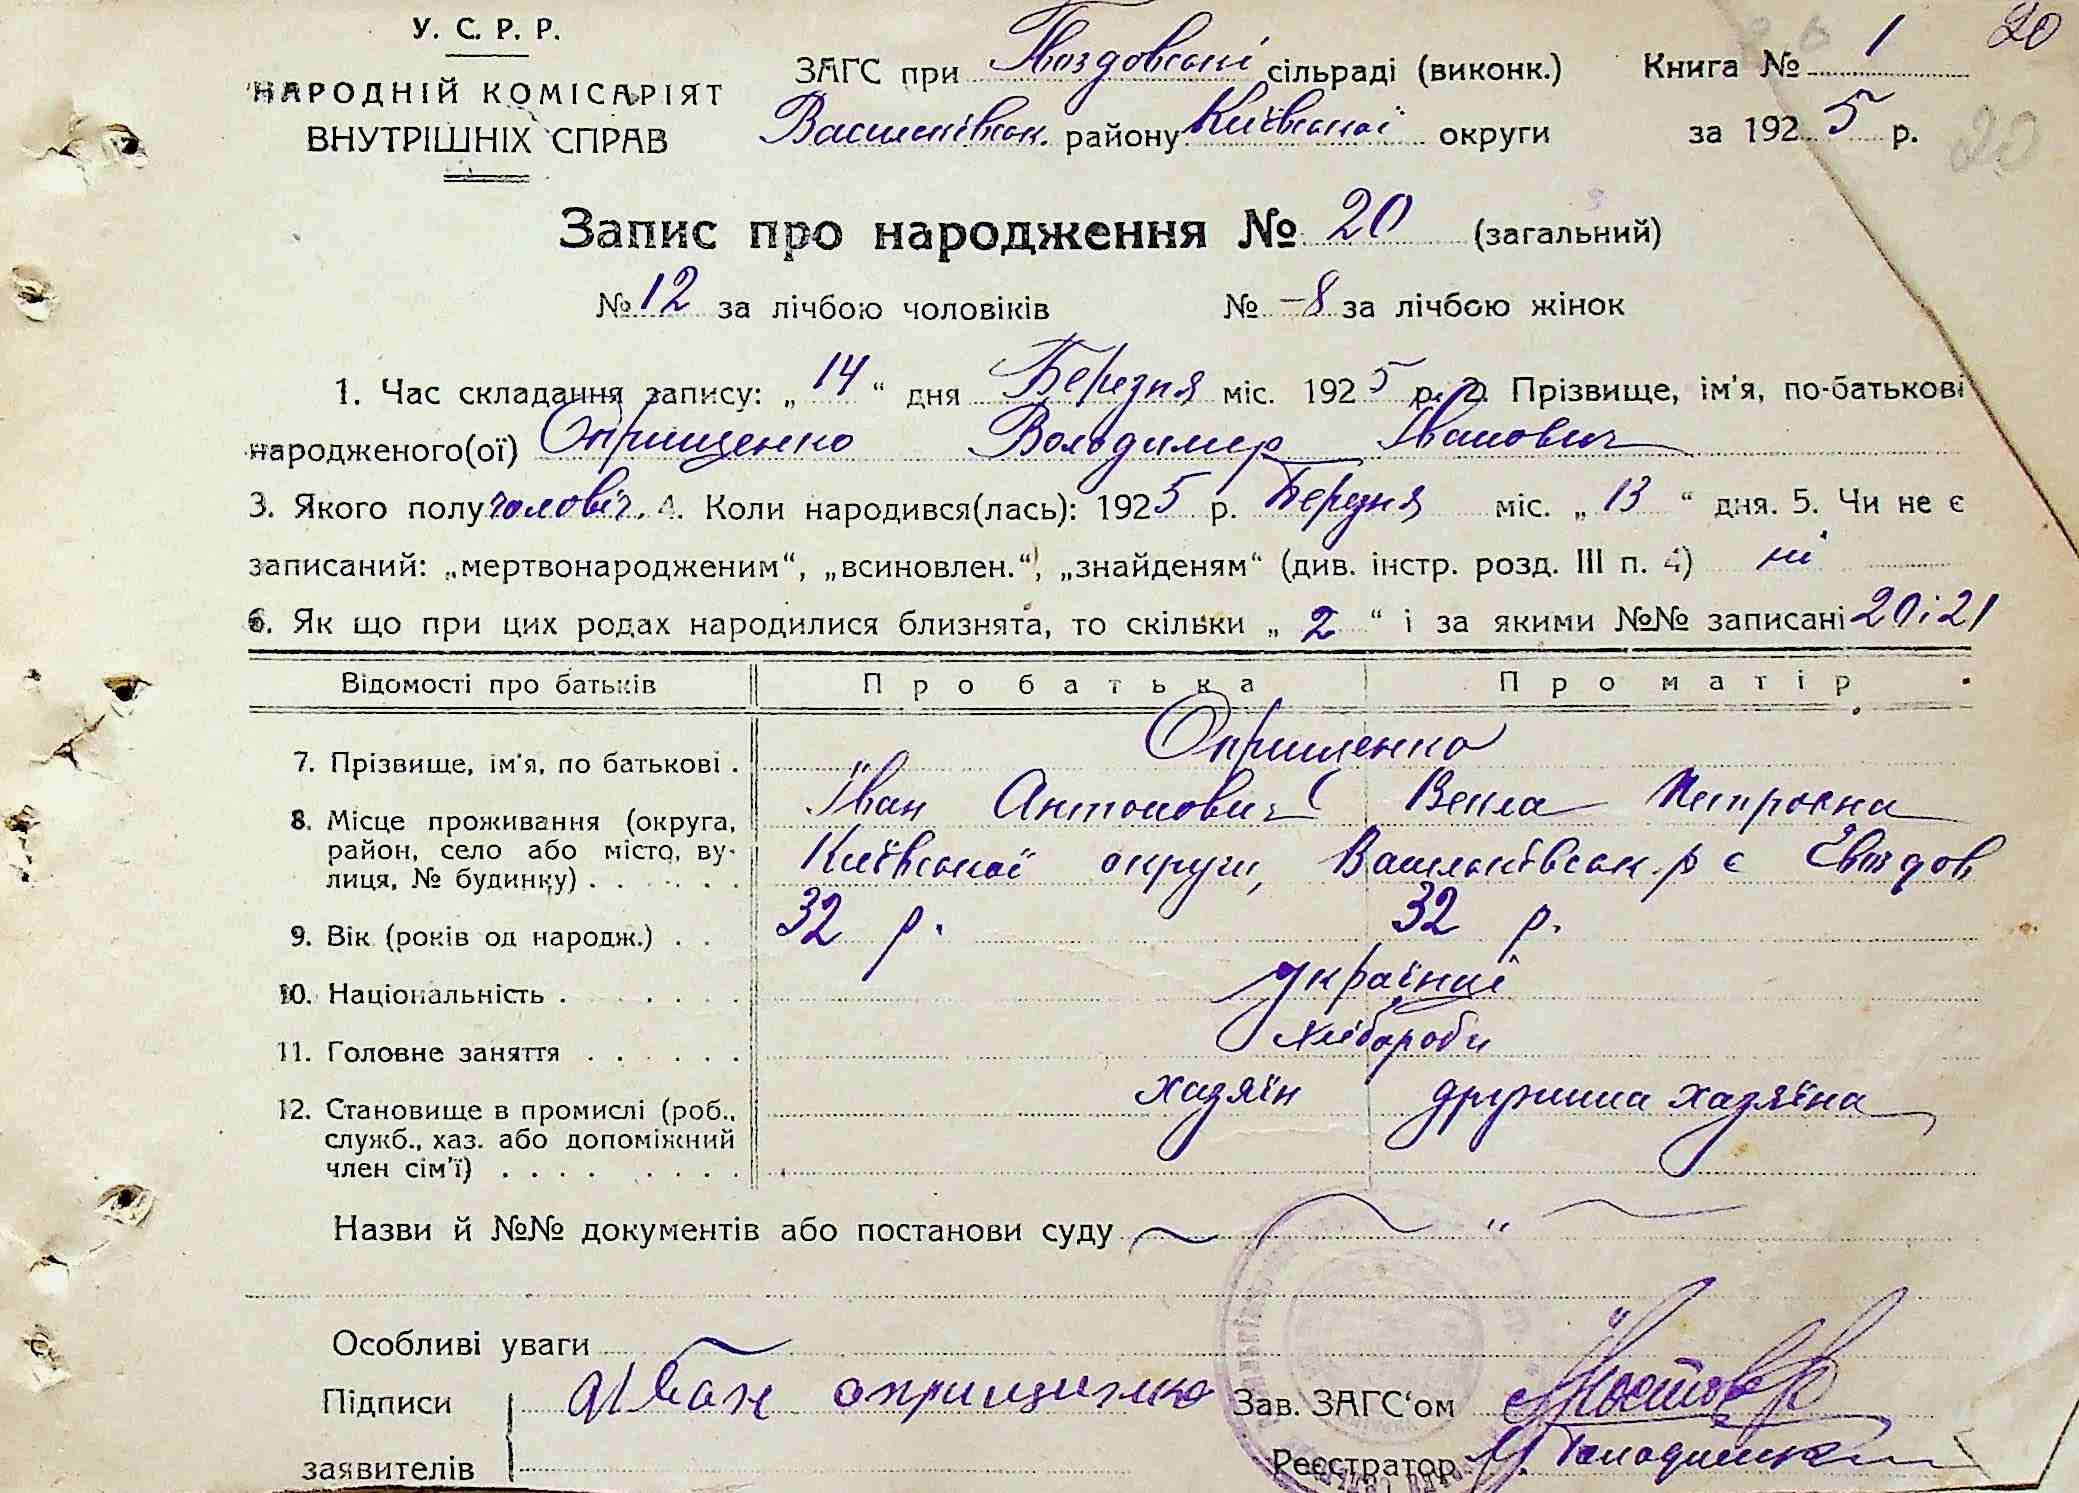 У. С. Р. Р.
НАРОДНІЙ КОМІСАРІЯТ
ВНУТРІШНІХ СПРАВ
ЗАГС при Гвоздовській сільраді (виконк.) Книга № 1 20
Васильківськ. району Київської округи за 1925 р. 20
Запис про народження № 20 (загальний)
№ 12 за лічбою чоловіків № – 8 за лічбою жінок
1. Час складання запису: „ 14 “ дня Березня міс. 1925 р. 2. Прізвище, ім'я, по-батькові
народженого(ої) Оприщенко Володимир Іванович
3. Якого полу чоловіч. 4. Коли народився(лась): 1925 р. Березня міс. „ 13 “ дня. 5. Чи не є
записаний: „мертвонародженим“, „всиновлен.“, „знайденям“ (див. інстр. розд. III п. 4) ні
6. Як що при цих родах народилися близнята, то скільки „ 2 “ і за якими №№ записані 20 і 21
Відомості про батьків Про батька Про матір
7. Прізвище, ім'я, по батькові . Оприщенко
Іван Антонович Векла Петровна
8. Місце проживання (округа, район, село або місто, вулиця, № будинку) . . . . . . Київської округи, Васильківськ. р с Гвоздов
9. Вік (років од народж.) . . 32 р. 32 р.
10. Національність . . . . . . українці
11. Головне заняття . . . . . . хлібороби
12. Становище в промислі (роб., служб., хаз. або допоміжний член сім'ї) . . . . . . . . . хазяїн дружина хазяїна
Назви й №№ документів або постанови суду ~ ~ " ~
Особливі уваги ~
Підписи заявителів Иван оприщенко
Зав. ЗАГС‘ом
Реєстратор